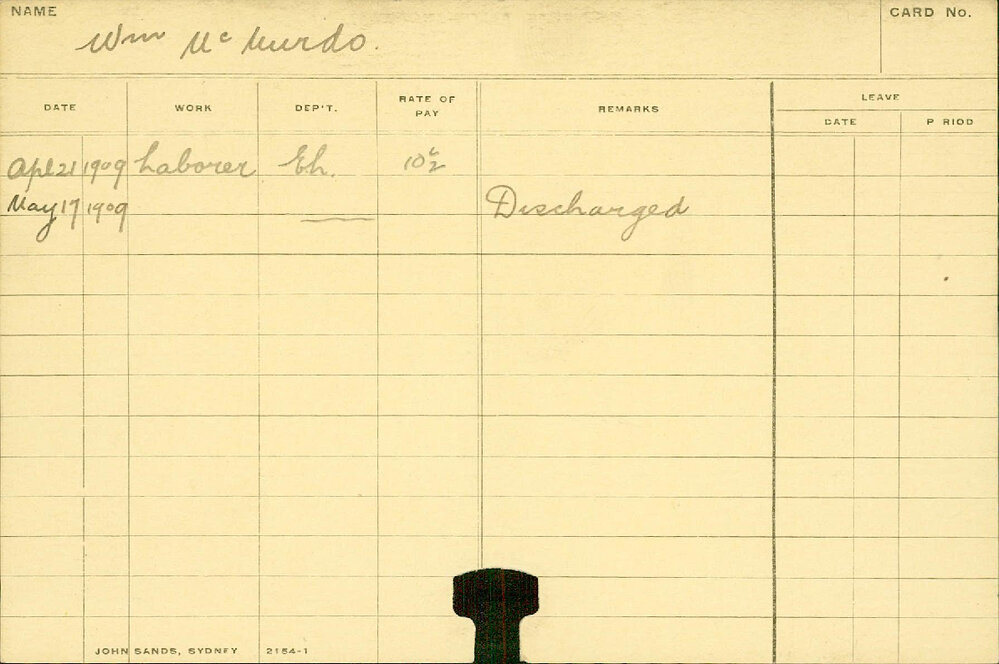 NAME
CARD No.
Wm Mc Murdo.
DATE WORK DEP'T. RATE OF PAY REMARKS LEAVE
DATE P RIOD
Apl 21 1909 Laborer Eh.
May 17 1909 Discharged
JOHN SANDS, SYDNEY 2154-1